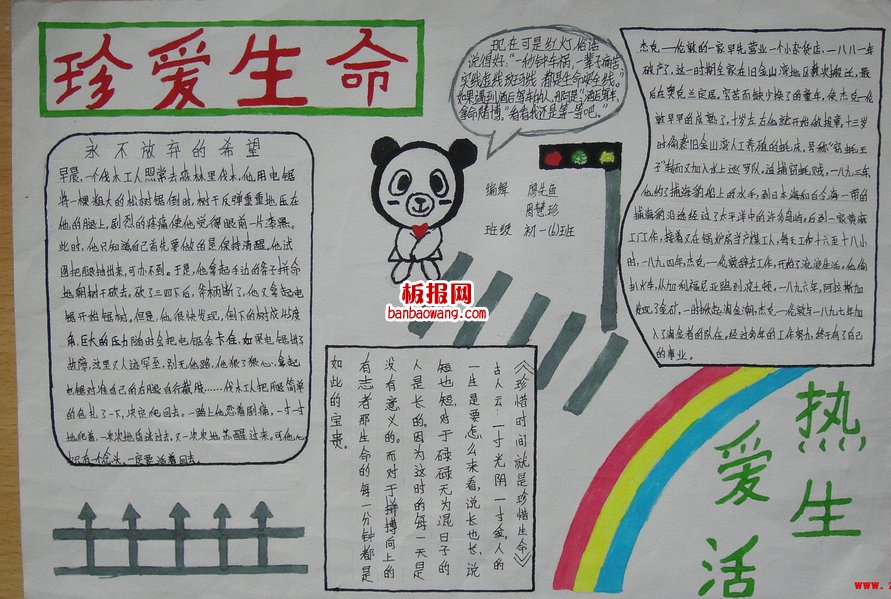 珍爱生命
现在可是红灯 俗话
说得好：“一秒钟车祸，一辈子痛苦
实线虚线斑马线，都是生命安全线。”
如果遇到酒后驾车的人，那阿是“酒后驾车，
拿命赌博。”看看我还是等一等吧。”
永不放弃的希望
早晨，一个伐木工人照常去森林里伐木，他用电锯
将一棵粗大的松树锯倒时，树干反弹重重地压在
他的腿上，剧烈的疼痛使他觉得眼前一片漆黑。
此时，他只知道自己首先要做的是保持清醒，他试
图把腿抽出来，可办不到。于是，他拿起手边的斧子拼命
地朝树干砍去，砍了三四下后，斧柄断了，他又拿起电
锯开始锯树。但是，他很快发现，倒下的树成45度
角，巨大的压力随时会把电锯条卡住，如果电锯出了
故障，这里又人迹罕至，别无他路，他狠了狠心，拿起
电锯对准自己的右腿自行截肢……伐木工人把腿简单
的包扎了一下，决定爬回去。一路上他忍着剧痛，一寸一寸
地爬着，一次次地昏迷过去，又一次次地苏醒过来，可他心
中只有一个念头，一定要活着回去。
编辑 廖先鱼
周慧珍
班级 初一(6)班
杰克—伦敦的一家早先营业一个小杂货店，一八八一年
破产了，这一时期全家在旧金山湾地区数次搬迁，最
后在奥克兰定居，穷苦而缺少换了的童年，使杰克—伦
敦早早的成熟了，十岁左右他就开始做报童，十三岁
时偷袭旧金山湾人工养殖的蚝床，号称“窃蚝王
子”转而又加入水上巡罗队，追捕窃蚝贼，一八九三年，
他约了捕海豹船上的水手，到日本海和白令海一带的
捕海豹沿途经过了太平洋中的许多岛屿。后到一家黄麻
工厂工作，接着又在锅炉房当产煤工人，每天工作十六至十八小
时，一八九四年，杰克—伦敦辞去工作，开始了流浪生活，他偷
扒火车，从加利福尼亚路到波士顿，一八九六年，阿拉斯加
发现了金矿，一时掀起淘金潮，杰克—伦敦与一八九七年加
入了淘金者的队伍。经过多年的工作努力，终于有了自己
的事业。
板报网
banbaowang.com
《珍惜时间就是珍惜生命》
古人云，一寸光阴一寸金，人的
一生是要怎么来看，说长也长，说
短也短，对于碌碌无为混日子的
人是长的。因为这时的每一天是
没有意义的。而对于拼搏向上的
有志者那生命的每一分钟都是
如此的宝贵。
热爱生活
www.